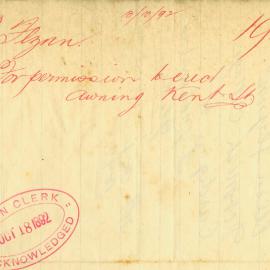 18/10/92
Flynn.
For permission to erect
awning Kent St
N CLERK
OCT 18 1892
CKNOWLEDGED